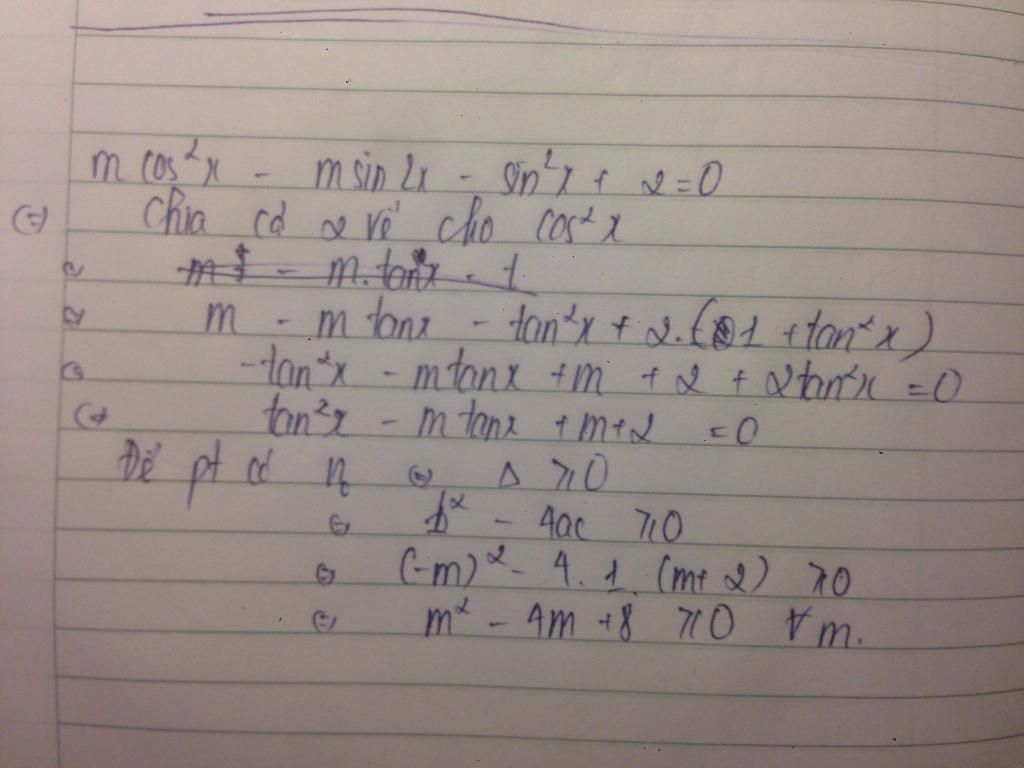 m cos²x - m sin 2x - sin²x + 2 = 0
(=) Chia cả 2 vế cho cos²x
m - m tanx - tan²x + 2.(1 + tan²x)
-tan²x - m tanx + m + 2 + 2tan²x = 0
tan²x - m tanx + m+2 = 0
Để pt có n₀ ⇔ Δ ⩾0
⇔ b² - 4ac ⩾0
⇔ (-m)² - 4. 1. (m+ 2) ⩾0
⇔ m² - 4m +8 ⩾0 ∀ m.